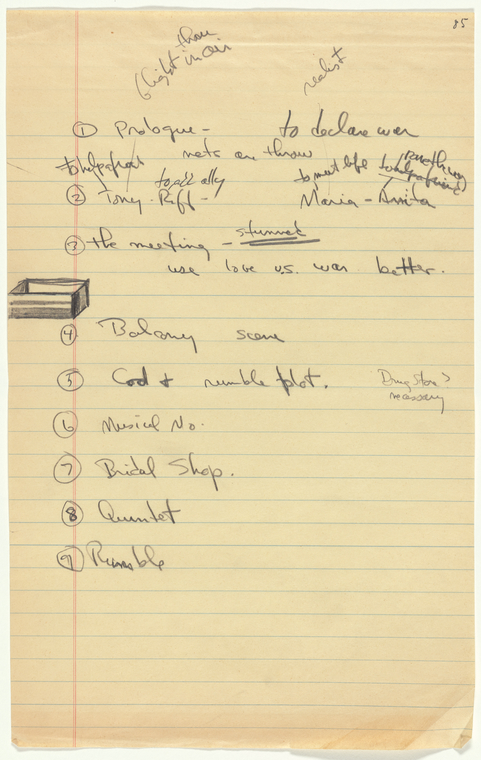 85
throw
fight in air
realist
① Prologue - to declare war
nets are throw
to help friend to get ally to meet life to help friend
② Tony - Riff - Maria - Anita
③ the meeting - stunned
use love v.s. war better.
④ Balcony scene
⑤ Cool + rumble plot. Drug Store?
necessary
⑥ Musical No.
⑦ Bridal Shop.
⑧ Quintet
⑨ Rumble